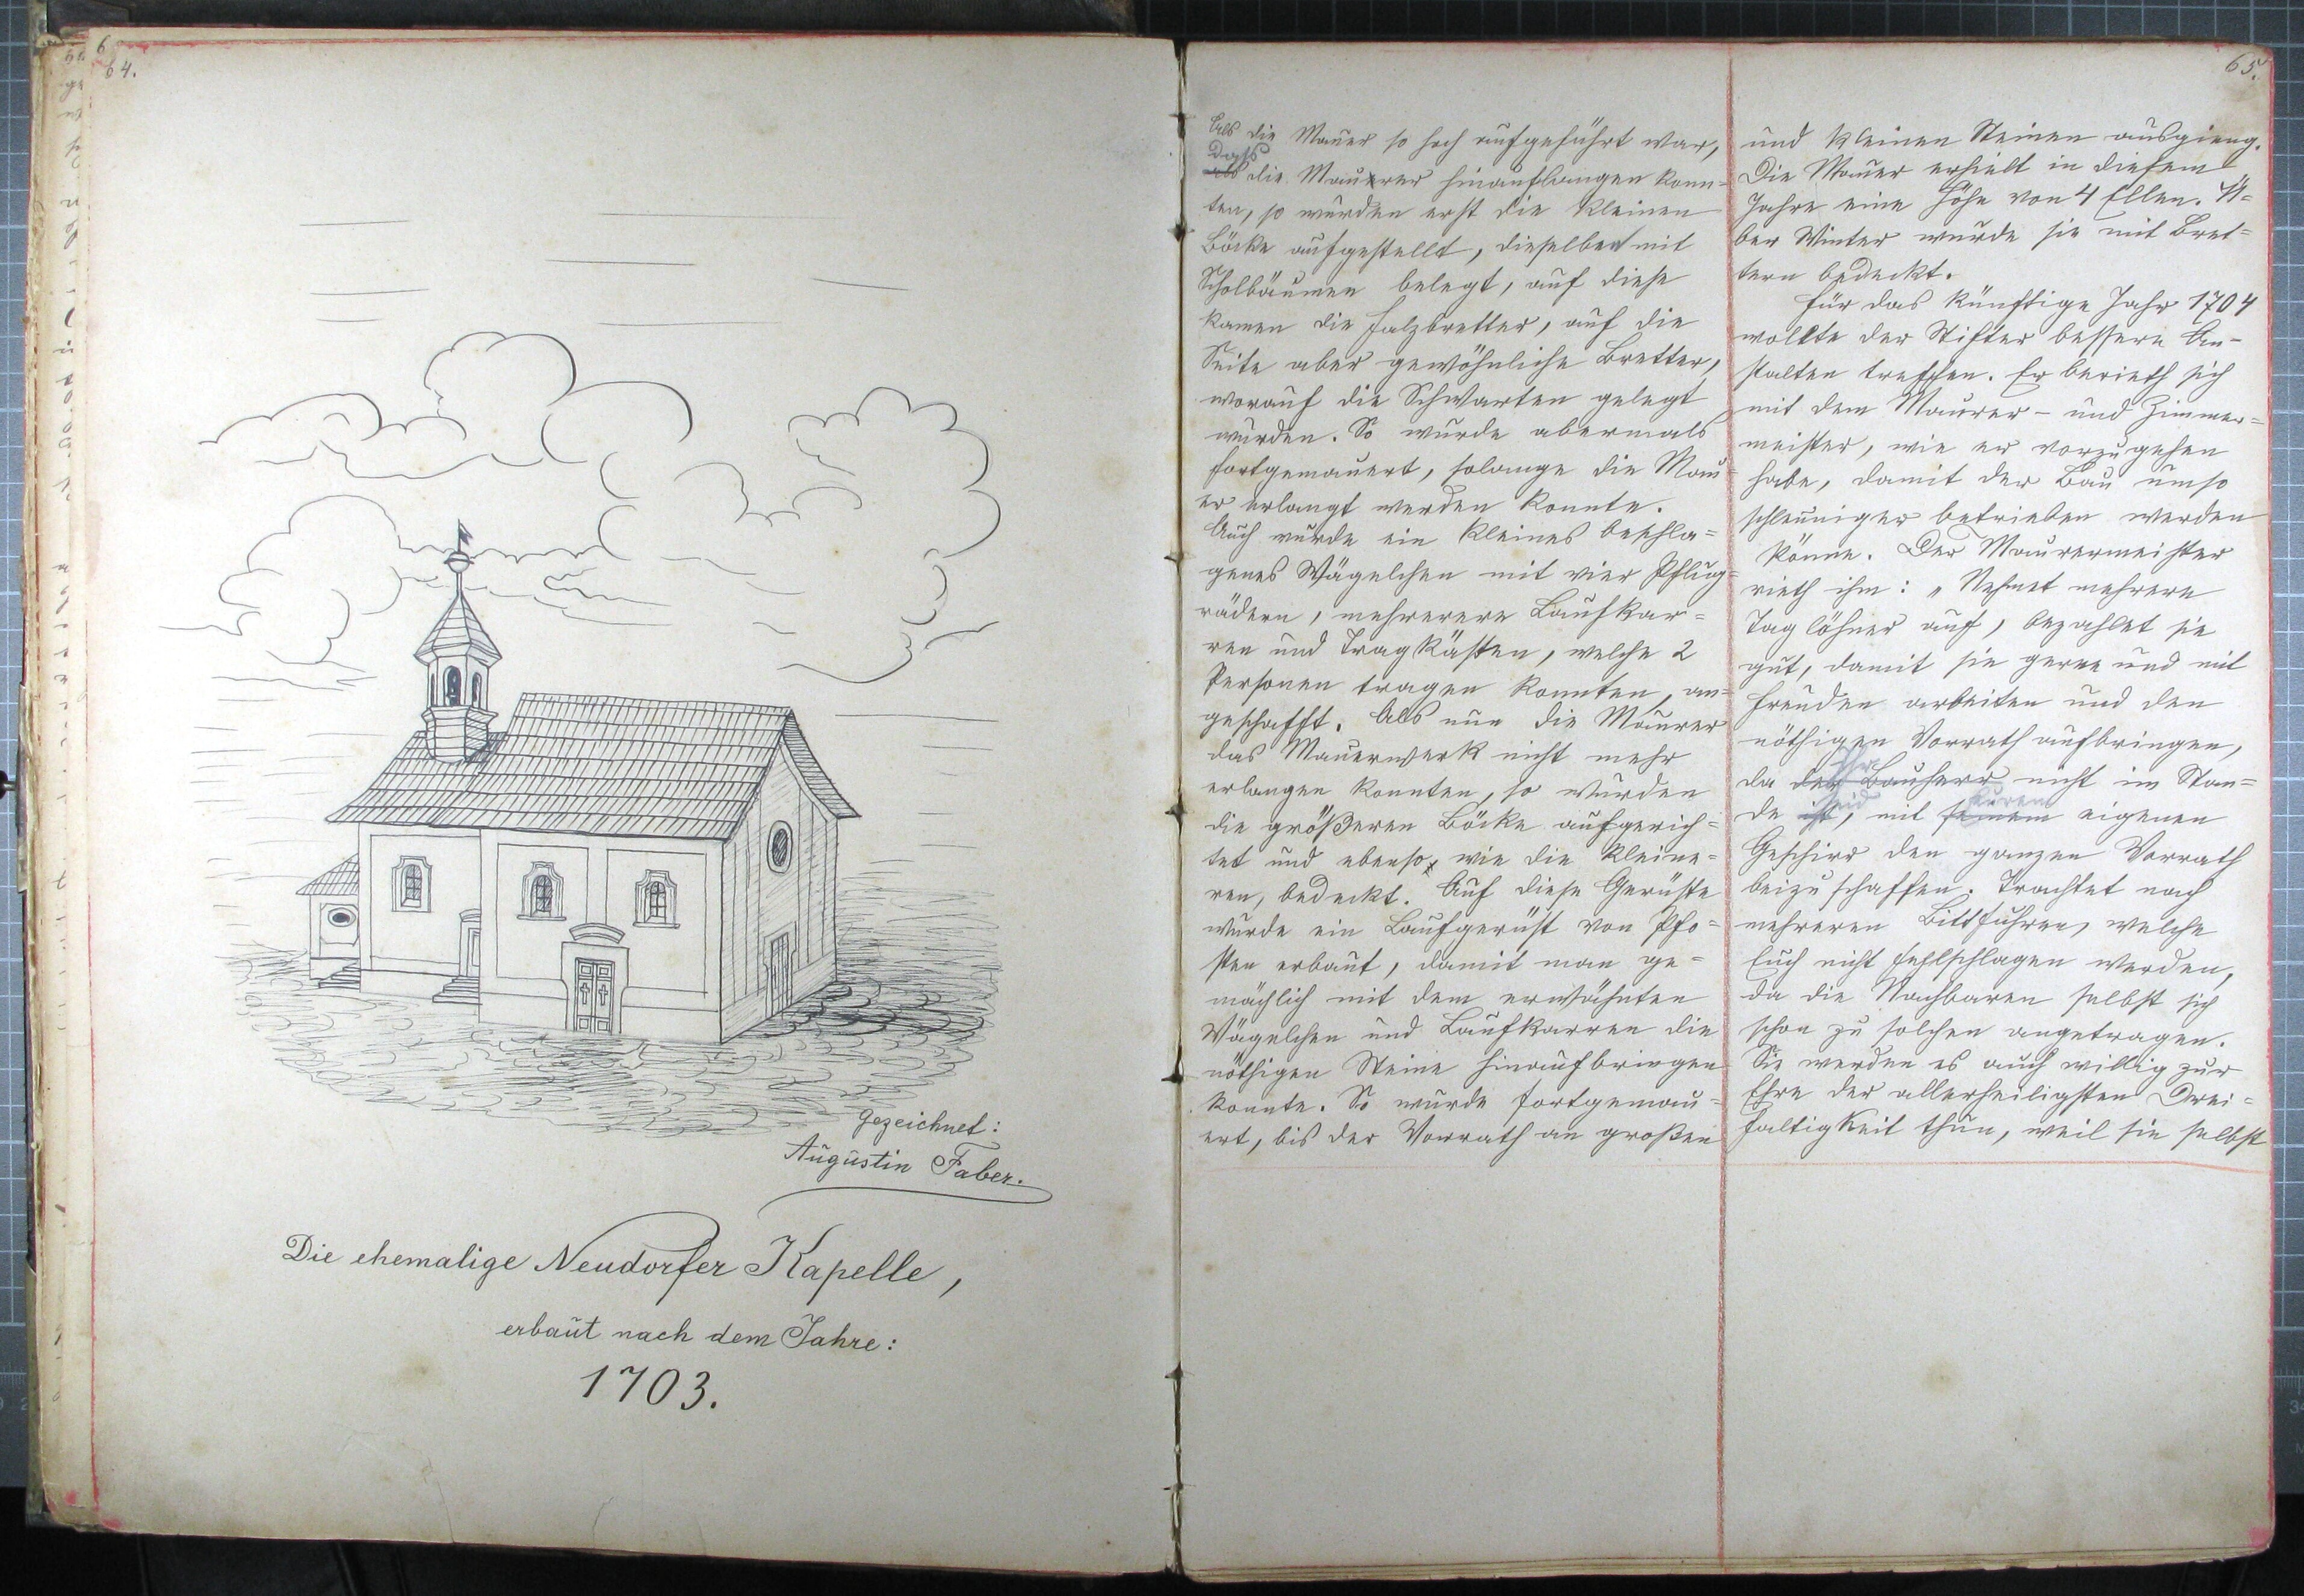 64.
gezeichnet:
Augustin Faber.
Die ehemalige Neudorfer Kapelle,
erbaut nach dem Jahre:
1703.
65.
Als die Mauer so hoch aufgeführt war,
dass
als die Maurer hinauflangen konn=
ten, so wurden erst die kleinen
Böcke aufgestellt, dieselben mit
Scholbäumen belegt, auf diese
kamen die Falzbretter, auf die
Seite aber gewöhnliche Bretter,
worauf die Schwarten gelegt
wurden. So wurde abermals
fortgemauert, solange die Mau=
er erlangt werden konnte.
Auch wurde ein kleines beschla=
genes Wägelchen mit vier Pflug=
rädern, mehrerere Laufkar=
ren und Tragkästen, welche 2
Personen tragen konnten, an=
geschafft. Als nun die Maurer
das Mauerwerk nicht mehr
erlangen konnten, so wurden
die größeren Böcke aufgerich=
tet und ebenso, wie die kleine=
ren, bedeckt. Auf diese Gerüste
wurde ein Laufgerüst von Pfo=
sten erbaut, damit man ge=
mächlich mit dem erwähnten
Wägelchen und Laufkarren die
nöthigen Steine hinaufbringen
konnte. So wurde fortgemau=
ert, bis der Vorrath an großen
und kleinen Steinen ausgieng.
Die Mauer erhielt in diesem
Jahre eine Höhe von 4 Ellen. Ü=
ber Winter wurde sie mit Bret=
tern bedeckt.
Für das künftige Jahr 1704
wollte der Stifter bessere An=
stalten treffen. Er berieth sich
mit dem Maurer- und Zimmer=
meister, wie er vorzugehen
habe, damit der Bau umso
schleuniger betrieben werden
könne. Der Maurermeister
rieth ihm: „Nehmet mehrere
Taglöhner auf, bezahlet sie
gut, damit sie gerne und mit
Freuden arbeiten und den
nöthigen Vorrath aufbringen,
Ihr
da der Bauherr nicht im Stan=
seid euren
de ist, mit seinem eigenen
Geschirr den ganzen Vorrath
beizuschaffen. Trachtet nach
mehreren Bittfuhren, welche
Euch nicht fehlschlagen werden,
da die Nachbaren selbst sich
schon zu solchen angetragen.
Sie werden es auch willig zur
Ehre der allerheiligsten Drei=
faltigkeit thun, weil sie selbst